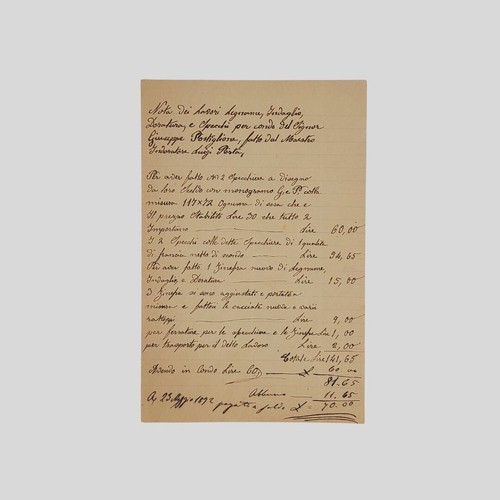 Nota dei Lavori Legname, Indaglio,
Doratura, e Specchi per conto del Signor
Giuseppe Postiglione, fatto dal Maestro
Indoratore Luigi Posta,
Per aver fatto No 2 Specchiere a disegno
da loro con monogramo G. e P. colle
misura 117x72 Ognuna di essa che e
Il prezzo Stabilito Lire 30 che tutto 2
Importano Lire 60,00
I. 2 Specchi colle dette Specchiere di 1 qualità
di francia netto di Lire 34,65
Per aver fatto 1 Zinefra nuovo di Legname,
Indaglio e Doratura Lire 15,00
3 Zinefre si sono aggiustati e portati a
misura e fattoci le cacciati nuovi e varii
rattoppi Lire 9,00
per ferrature per le specchiere e le Zinefre Lire 1,00
per trasporto per il detto Lavoro Lire 2,00
Totale Lire 141,65
Avendo in Conto Lire 60, £ 60.00
81.65
11.65
23 Maggio 1892 pagato a saldo £ = 70.00